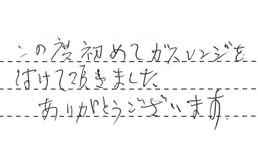 この度初めてガスレンジを
はけて頂きました
ありがとうございます